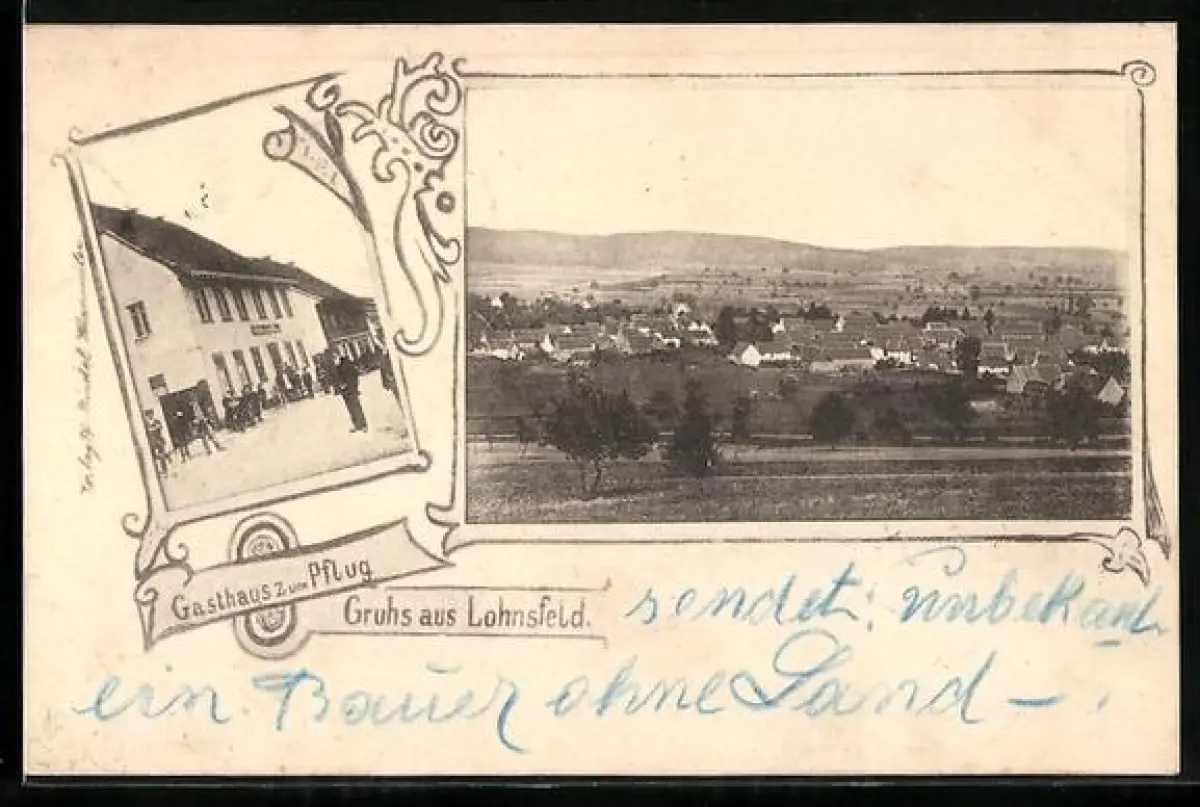 Gasthaus Zum Pflug
Gruhs aus Lohnsfeld.
sendet: unbekannt
ein Bauer ohne Land – .